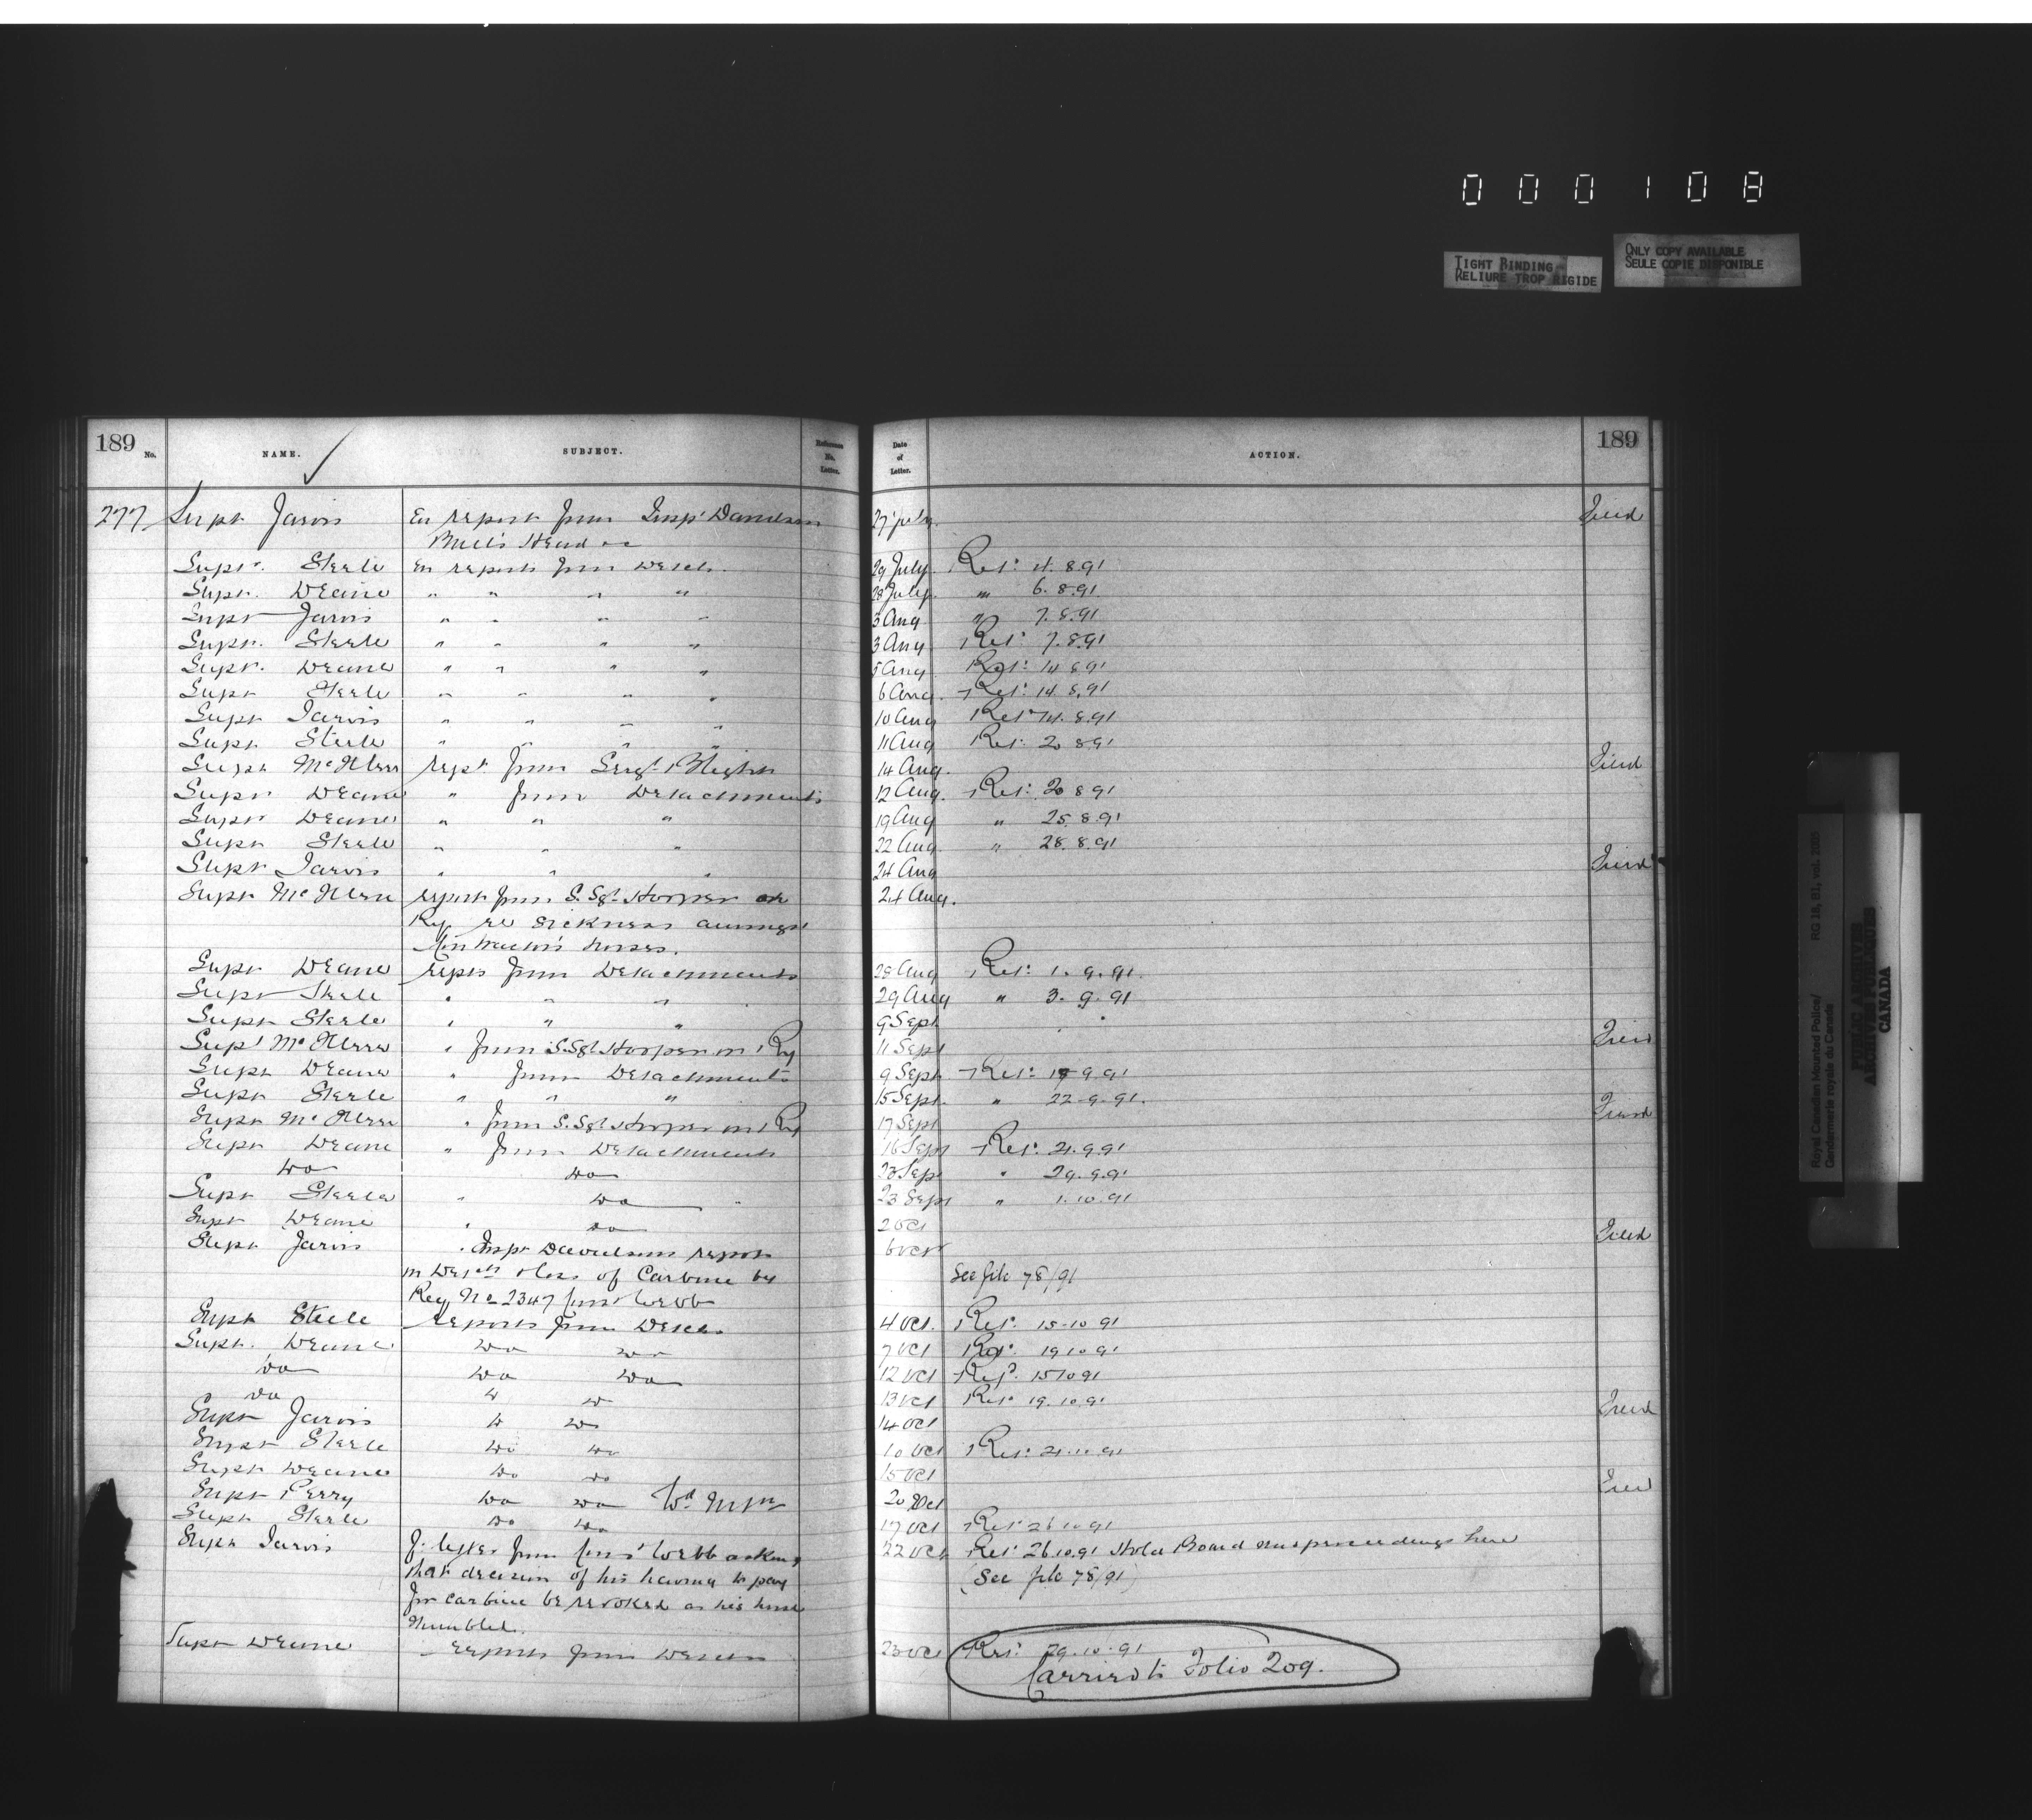 0 0 0 1 0 8
TIGHT BINDING
RELIURE TROP RIGIDE
ONLY COPY AVAILABLE
SEULE COPIE DISPONIBLE
189 No. NAME. SUBJECT. Reference No. Letter. Date of Letter. ACTION. 189
277 Supt Jarvis En report from Insp Davidson 27 July Filed
Mill's Head
Supt. Steele En reports from Detach. 29 July Ret: 4.8.91
Supt. Deane " " " " 28 July " 6.8.91
Supt Jarvis " " " " 3 Aug " 7.8.91
Supt. Steele " " " " 3 Aug Ret: 7.8.91
Supt. Deane " " " " 5 Aug Ret: 14.8.91
Supt Steele " " " " 6 Aug. Ret: 14.8.91
Supt Jarvis " " " " 10 Aug Ret 14.8.91
Supt Steele " " " " 11 Aug Ret: 20 8 91
Supt McIllree rept from Sergt 14 Aug. Filed
Supt Deane " from Detachments 12 Aug. Ret: 20 8 91
Supt Deane " " " 19 Aug " 25.8.91
Supt Steele " " " 22 Aug " 28.8.91
Supt Jarvis " " " 24 Aug Filed
Supt McIllree report from S.Sgt. Hooper on 24 Aug.
Ry re sickness amongst
Contractor's horses.
Supt Deane repts from Detachments 28 Aug Ret: 1.9.91.
Supt Steele " " " 29 Aug " 3.9.91
Supt Steele " " " 9 Sept
Supt McIllree " from S.Sgt Hooper on Ry 11 Sept Filed
Supt Deane " from Detachments 9 Sept Ret: 19.9.91
Supt Steele " " " 15 Sept. " 22.9.91.
Supt McIllree " from S.Sgt Hooper on Ry 17 Sept Filed
Supt Deane " from Detachments 16 Sept Ret: 21.9.91
Do Do 23 Sep " 29.9.91
Supt Steele " Do 23 Sept " 1.10.91
Supt Deane " Do 2 Oct
Supt Jarvis " Inspr Davidsons report 6 Oct Filed
on Detcts & loss of Carbine by See file 78/91
Reg No 2347 Const Webb
Supt Steele reports from Detcs. 4 Oct. Ret: 15-10 91
Supt. Deane Do Do 7 Oct Ret: 19 10 91
Do Do Do 12 Oct Ret. 15 10 91
Do Do 13 Oct Ret 19.10.91
Supt Jarvis Do 14 Oct Filed
Supt Steele Do Do 10 Oct Ret: 21.10.91
Supt Deane Do Do 15 Oct
Supt Perry Do Do Wd Mtn 20 Oct Filed
Supt Steele Do Do 17 Oct Ret 26 10 91
Supt Jarvis F. letter from Const Webb asking 22 Oct Ret 26.10.91 Hold Board proceedings here
that decision of his having to pay (See file 78/91)
for carbine be revoked as his horse
stumbled.
Supt Deane Reports from Detchs 23 Oct Ret: 29.10.91
Carried to Folio 209.
Royal Canadian Mounted Police/ RG 18, B1, vol. 2005
Gendarmerie royale du Canada
PUBLIC ARCHIVES
ARCHIVES PUBLIQUES
CANADA